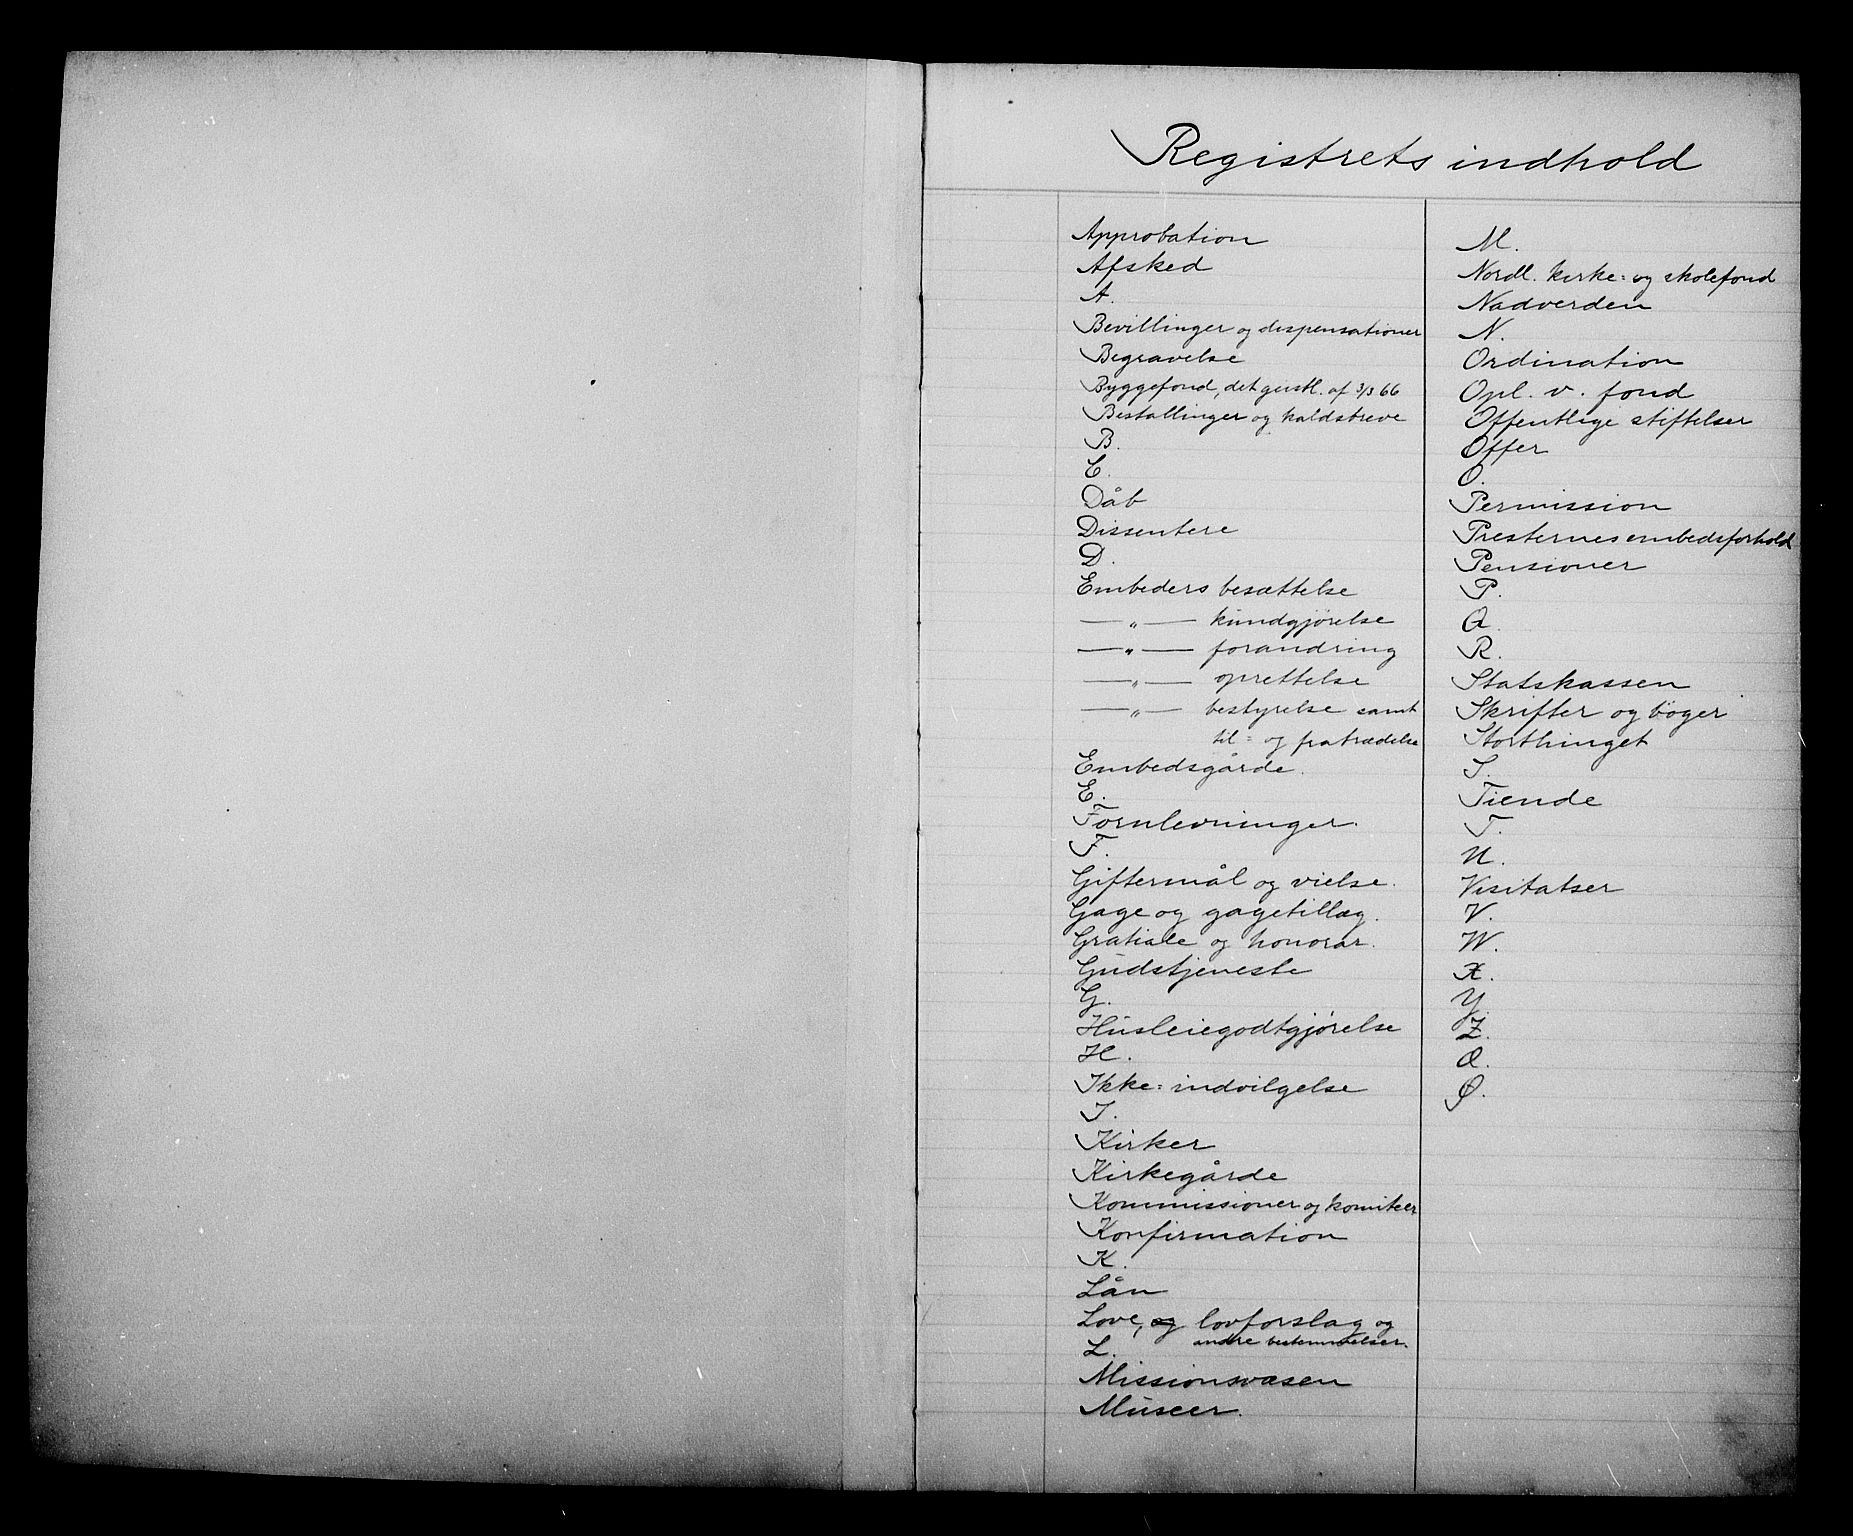 Registrets indhold
Approbation
Afsked
A.
Bevillinger og dispensationer
Begravelse
Byggefond, det geistl. af 3/3 66
Bestallinger og kaldsbreve
B.
C.
Dåb
Dissentere
D.
Embeders besættelse
—„— kundgjørelse
—„— forandring
—„— oprettelse
—„— bestyrelse samt
til= og fratrædelse
Embedsgårde.
E.
Fornlevninger.
F.
Giftermål og vielse.
Gage og gagetillæg.
Gratiale og honorar.
Gudstjeneste
G.
Husleiegodtgjørelse
H.
Ikke=indvilgelse
I.
Kirker
Kirkegårde
Kommissioner og komiteer
Konfirmation
K.
Lån
Love, og lovforslag og
andre bestemmelser.
L.
Missionsvæsen
Museer.
M.
Nordl. kirke= og skolefond
Nadverden
N.
Ordination
Opl. v. fond
Offentlige stiftelser
Offer
O.
Permission
Presternes embedsforhold
Pensioner
P.
Q.
R.
Statskassen
Skrifter og bøger
Storthinget
S.
Tiende
T.
U.
Visitatser
V.
W.
X.
Y.
Z.
Æ.
Ø.